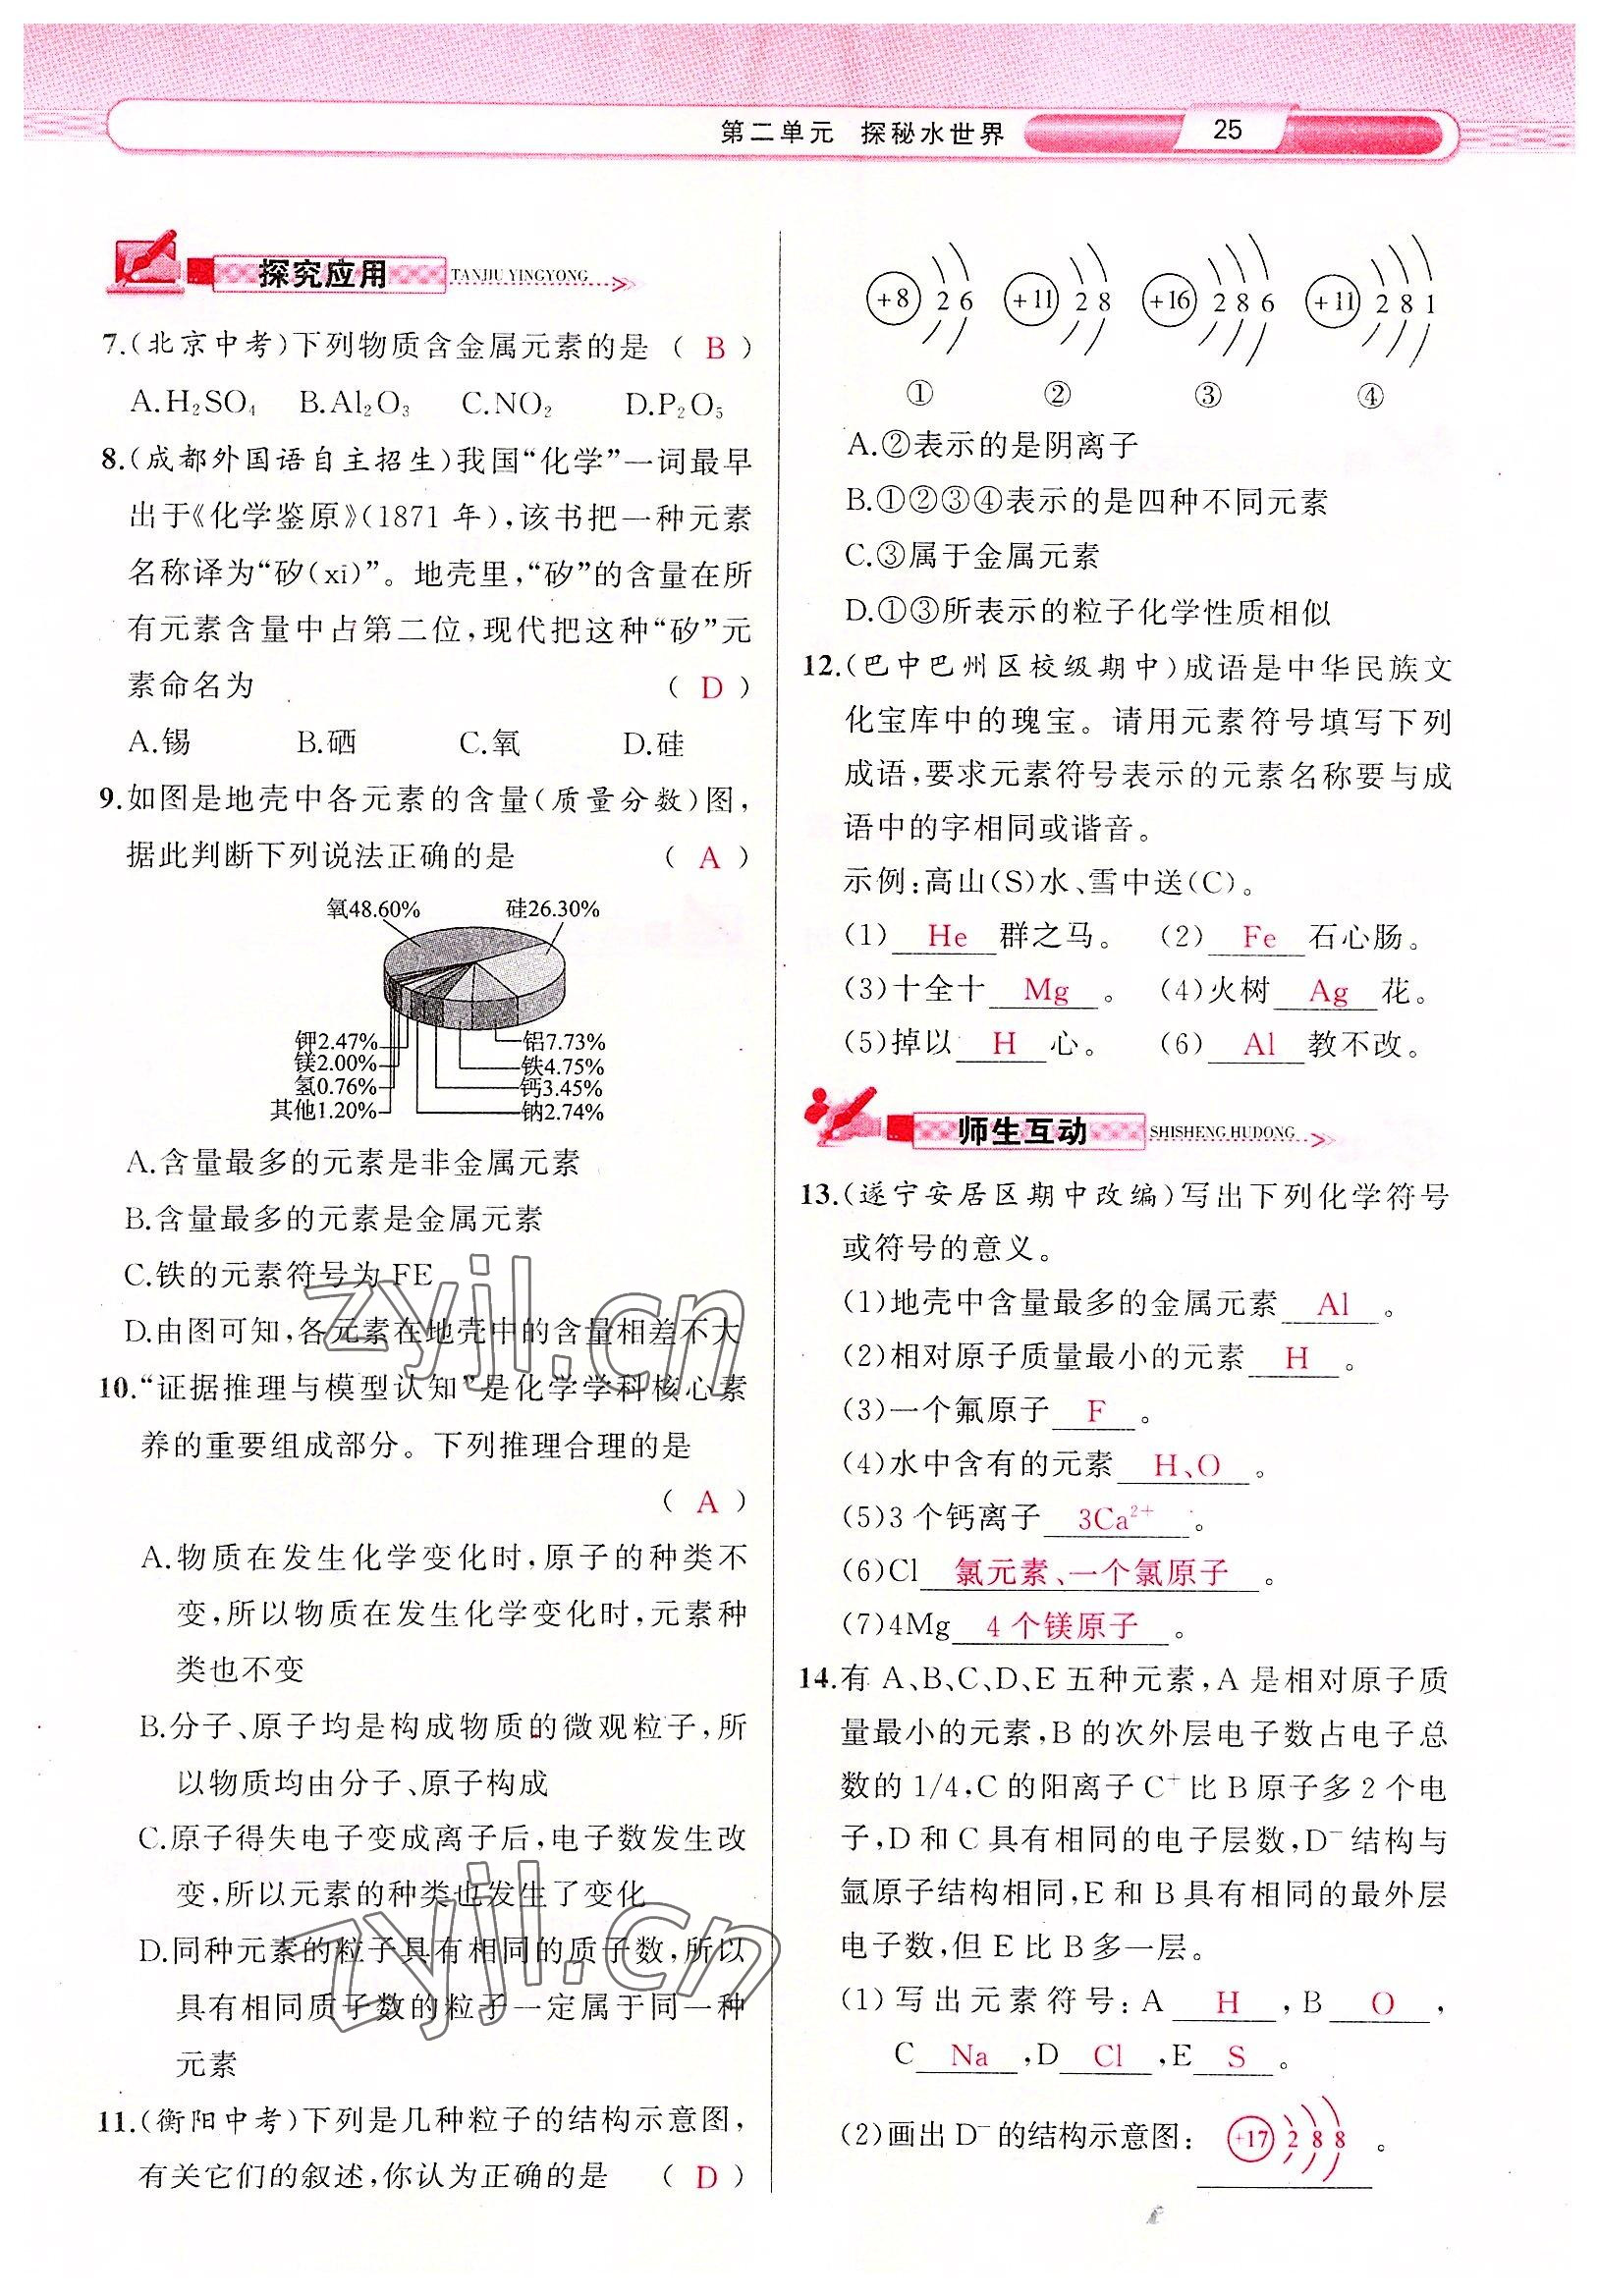 第二单元 探秘水世界 25
探究应用 TANJIU YINGYONG
7.(北京中考)下列物质含金属元素的是 ( B )
A.H₂SO₄ B.Al₂O₃ C.NO₂ D.P₂O₅
8.(成都外国语自主招生)我国“化学”一词最早
出于《化学鉴原》(1871 年),该书把一种元素
名称译为“矽(xi)”。地壳里,“矽”的含量在所
有元素含量中占第二位,现代把这种“矽”元
素命名为 ( D )
A.锡 B.硒 C.氧 D.硅
9.如图是地壳中各元素的含量(质量分数)图,
据此判断下列说法正确的是 ( A )
氧48.60% 硅26.30%
钾2.47% 铝7.73%
镁2.00% 铁4.75%
氢0.76% 钙3.45%
其他1.20% 钠2.74%
A.含量最多的元素是非金属元素
B.含量最多的元素是金属元素
C.铁的元素符号为 FE
D.由图可知,各元素在地壳中的含量相差不大
10.“证据推理与模型认知”是化学学科核心素
养的重要组成部分。下列推理合理的是
( A )
A.物质在发生化学变化时,原子的种类不
变,所以物质在发生化学变化时,元素种
类也不变
B.分子、原子均是构成物质的微观粒子,所
以物质均由分子、原子构成
C.原子得失电子变成离子后,电子数发生改
变,所以元素的种类也发生了变化
D.同种元素的粒子具有相同的质子数,所以
具有相同质子数的粒子一定属于同一种
元素
11.(衡阳中考)下列是几种粒子的结构示意图,
有关它们的叙述,你认为正确的是 ( D )
+8 2 6 +11 2 8 +16 2 8 6 +11 2 8 1
① ② ③ ④
A.②表示的是阴离子
B.①②③④表示的是四种不同元素
C.③属于金属元素
D.①③所表示的粒子化学性质相似
12.(巴中巴州区校级期中)成语是中华民族文
化宝库中的瑰宝。请用元素符号填写下列
成语,要求元素符号表示的元素名称要与成
语中的字相同或谐音。
示例:高山(S)水、雪中送(C)。
(1) He 群之马。 (2) Fe 石心肠。
(3)十全十 Mg 。 (4)火树 Ag 花。
(5)掉以 H 心。 (6) Al 教不改。
师生互动 SHISHENG HUDONG
13.(遂宁安居区期中改编)写出下列化学符号
或符号的意义。
(1)地壳中含量最多的金属元素 Al 。
(2)相对原子质量最小的元素 H 。
(3)一个氟原子 F 。
(4)水中含有的元素 H、O 。
(5)3 个钙离子 3Ca²⁺ 。
(6)Cl 氯元素、一个氯原子 。
(7)4Mg 4 个镁原子 。
14.有 A、B、C、D、E 五种元素,A 是相对原子质
量最小的元素,B 的次外层电子数占电子总
数的 1/4,C 的阳离子 C⁺ 比 B 原子多 2 个电
子,D 和 C 具有相同的电子层数,D⁻ 结构与
氩原子结构相同,E 和 B 具有相同的最外层
电子数,但 E 比 B 多一层。
(1)写出元素符号:A H ,B O ,
C Na ,D Cl ,E S 。
(2)画出 D⁻ 的结构示意图: +17 2 8 8 。
zyjl.cn
zyjl.cn